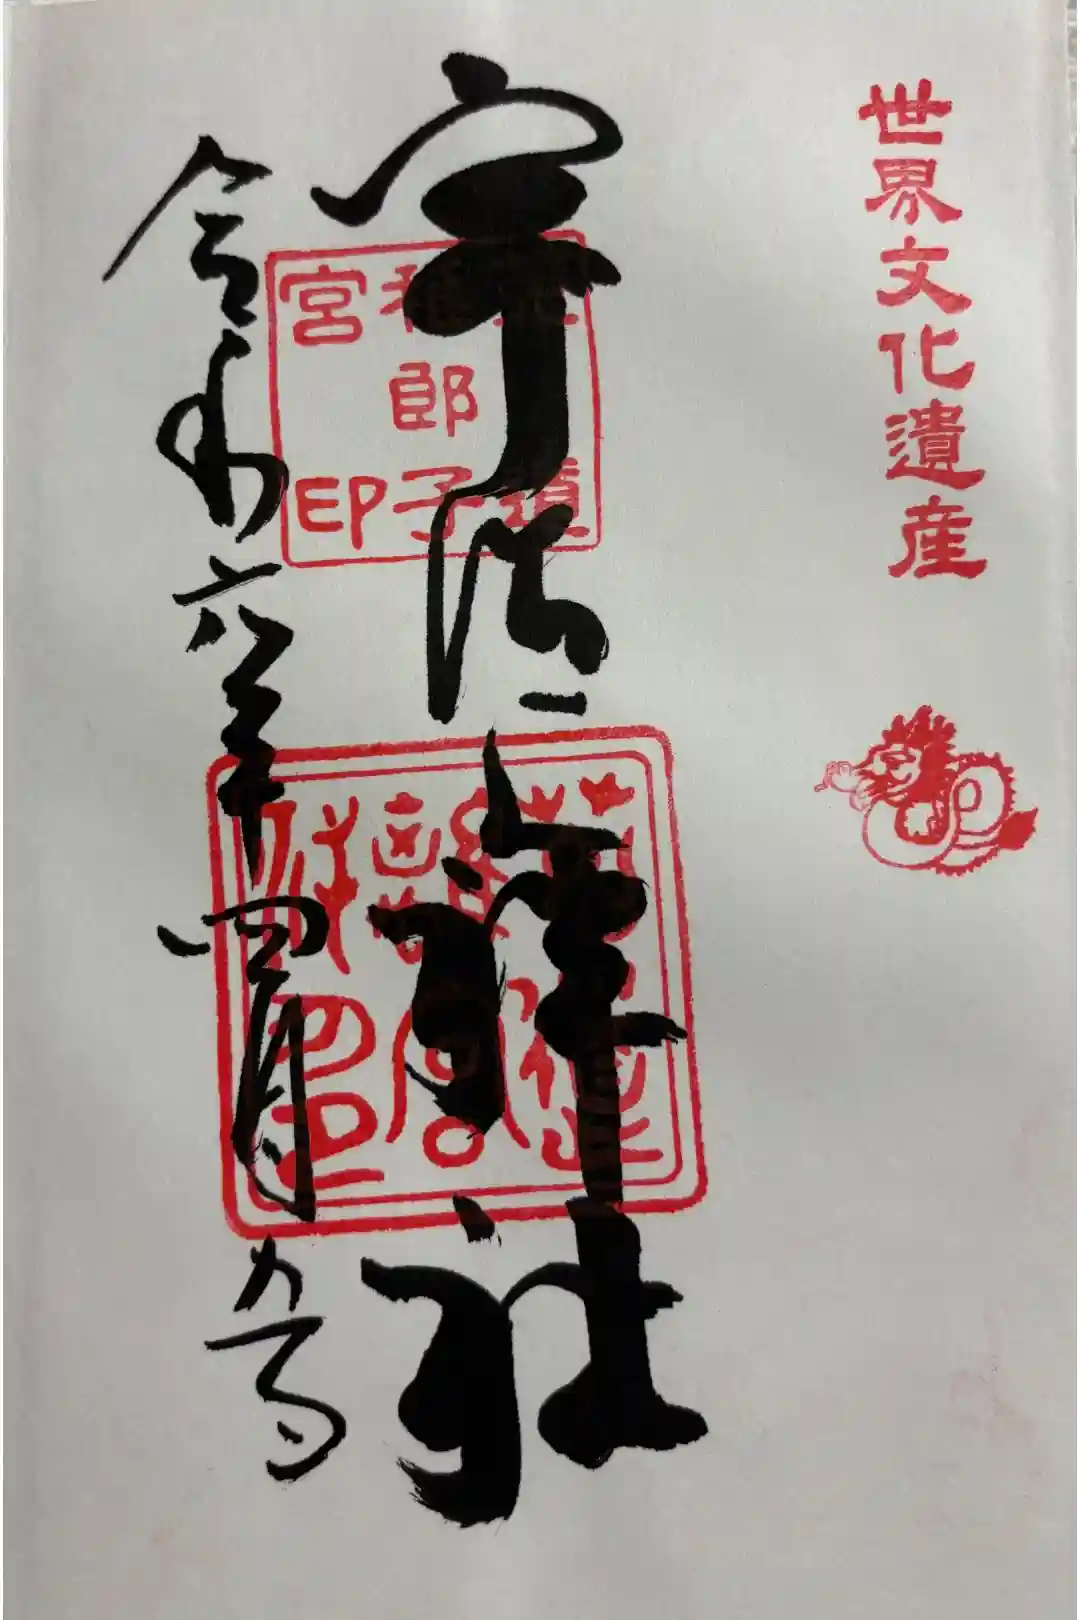 世界文化遺産
宇治上神社
令和六年四月九日
菟道
稚郎子
宮印